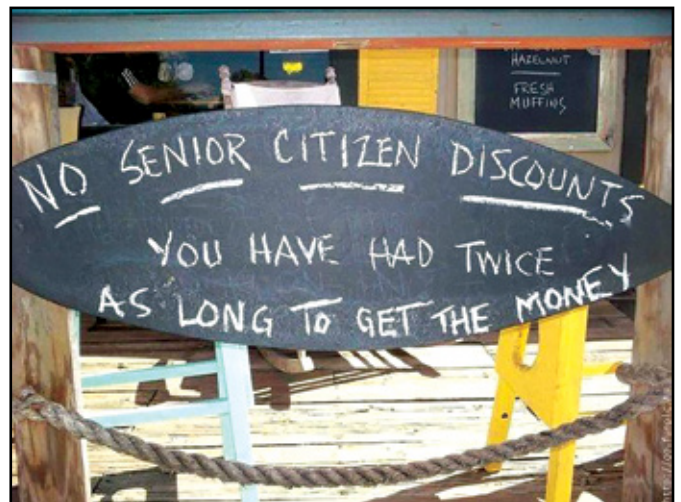 HAZELNUT
FRESH
MUFFINS
NO SENIOR CITIZEN DISCOUNTS
YOU HAVE HAD TWICE
AS LONG TO GET THE MONEY